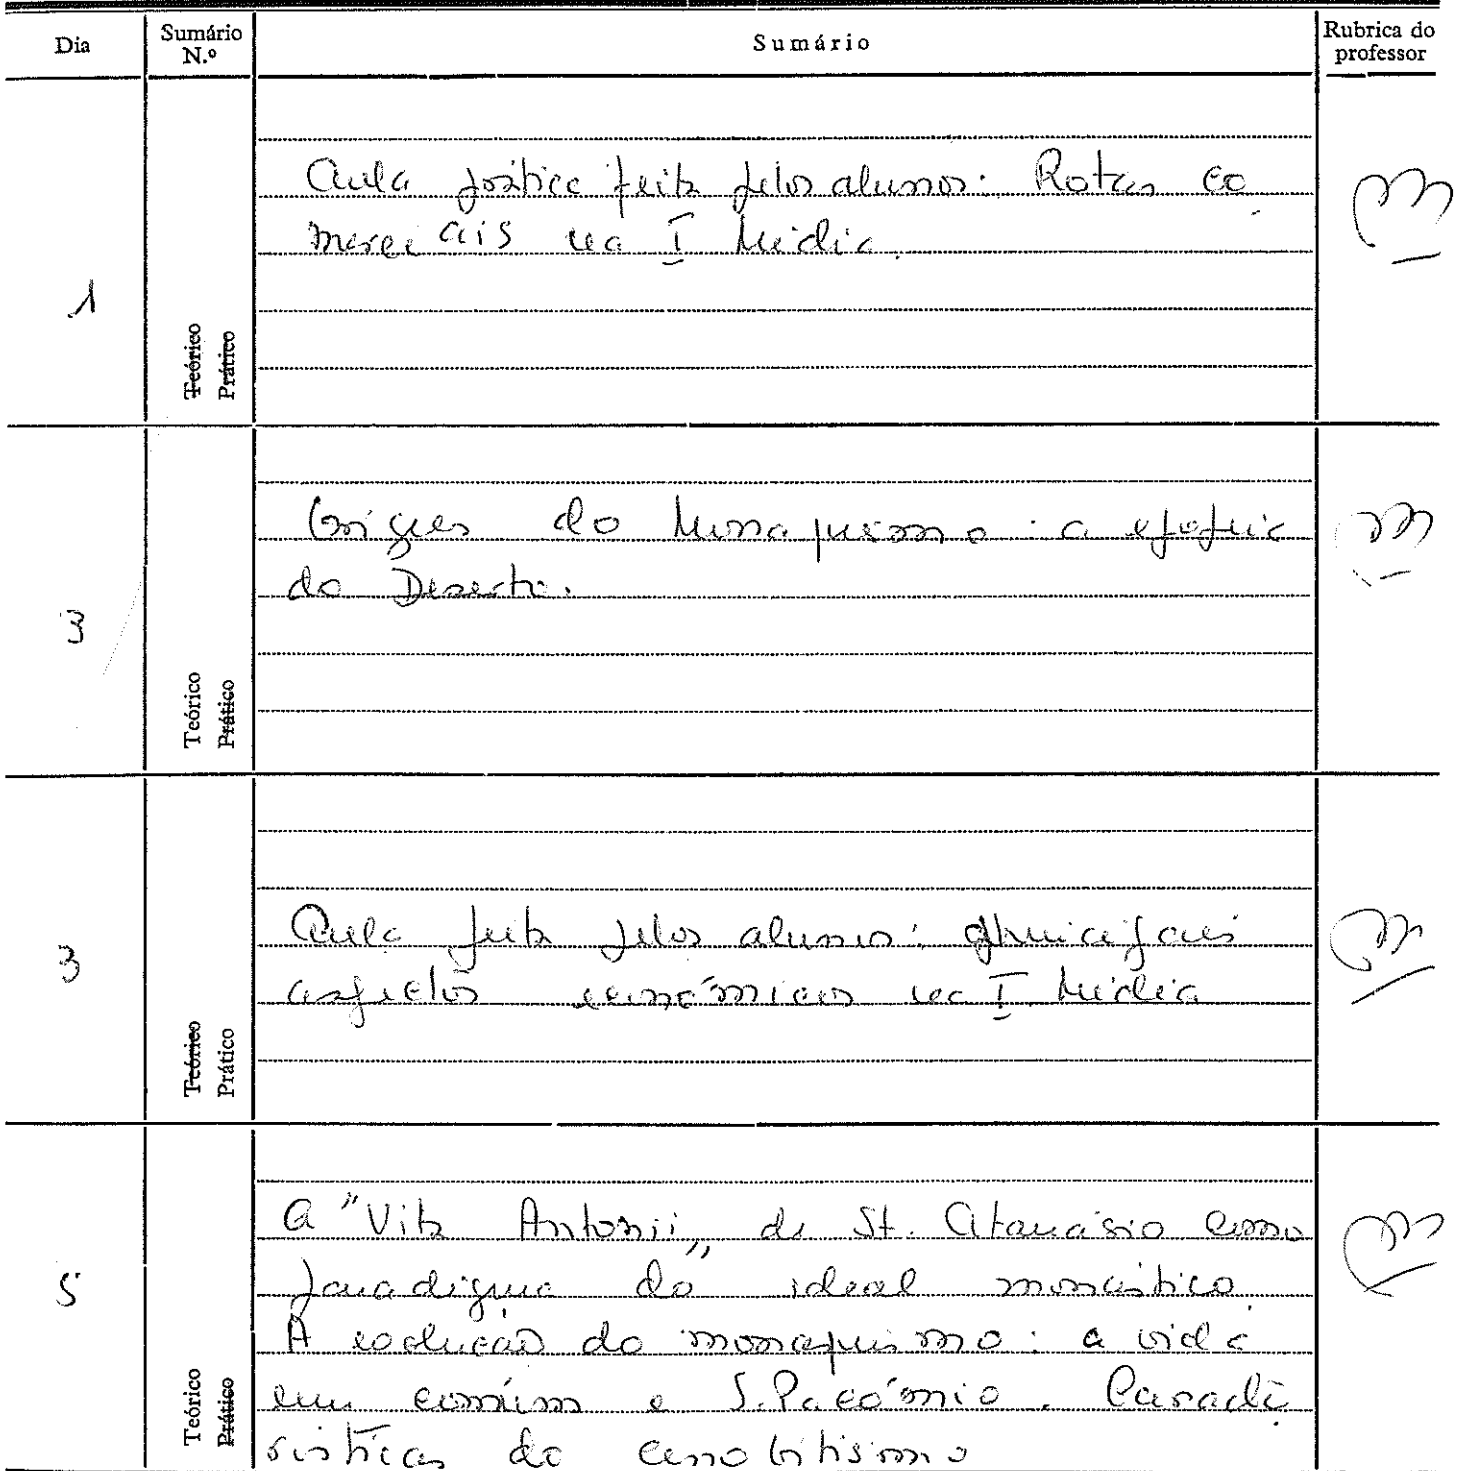 Dia
Sumário N.º
Sumário
Rubrica do professor
1
Teórico
Prático
Aula prática feita pelos alunos: Rotas co
merciais na I. Média.
3
Teórico
Prático
Origens do Monaquismo: a epopeia
do Deserto.
3
Teórico
Prático
Aula feita pelos alunos: principais
aspectos económicos na I. Média
5
Teórico
Prático
A "Vita Antonii" de St. Atanásio como
paradigma do ideal monástico.
A evolução do monaquismo: a vida
em comúm e S. Pacómio. Caracte
rísticas do cenobitismo